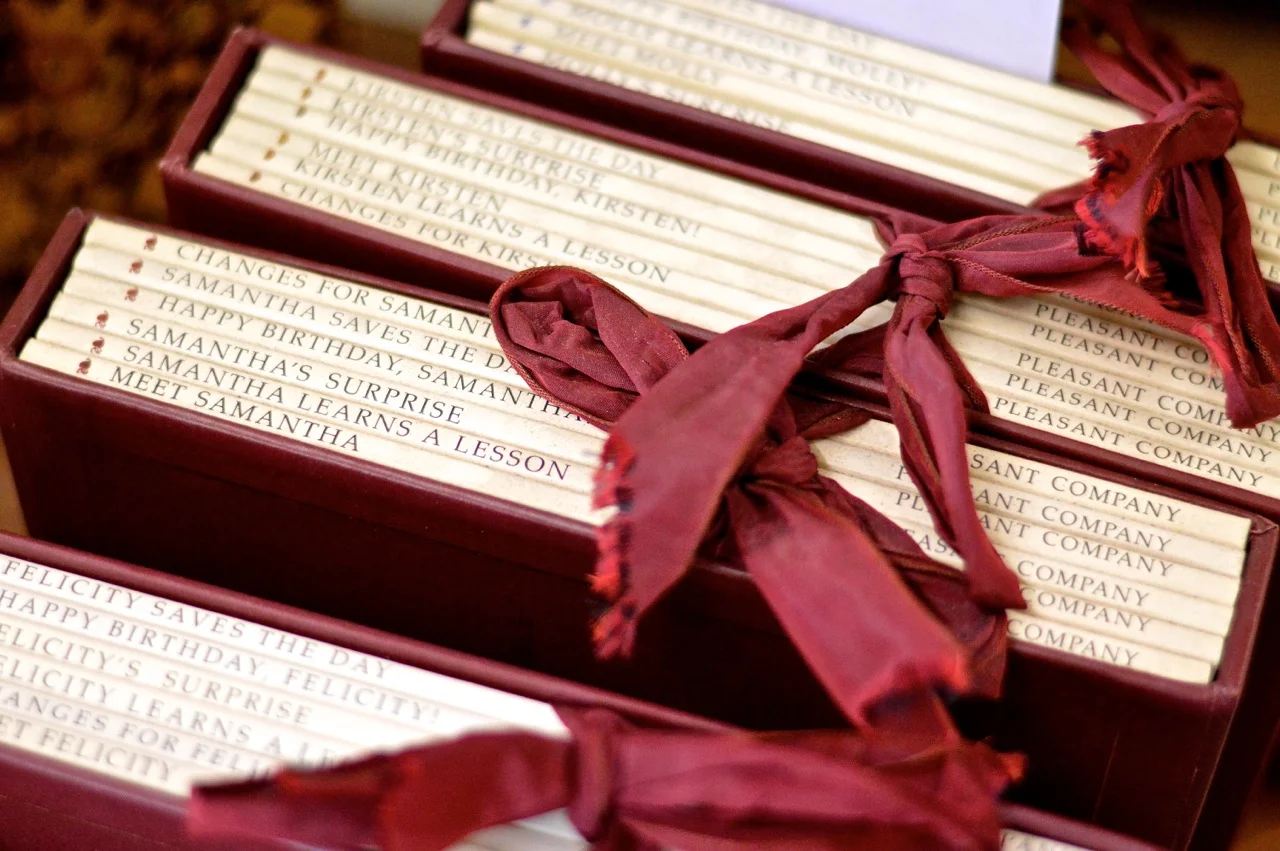 THE DAY
BIRTHDAY, MOLLY!
MOLLY LEARNS A LESSON
MEET MOLLY
MOLLY'S SURPRISE
KIRSTEN SAVES THE DAY
KIRSTEN'S SURPRISE
HAPPY BIRTHDAY, KIRSTEN!
MEET KIRSTEN
KIRSTEN LEARNS A LESSON
CHANGES FOR KIRS
PLEASANT CO
PLEASANT COM
PLEASANT COMP
PLEASANT COMPANY
PLEASANT COMPANY
CHANGES FOR SAMANT
SAMANTHA SAVES THE D
HAPPY BIRTHDAY, SAMANTHA
SAMANTHA'S SURPRISE
SAMANTHA LEARNS A LESSON
MEET SAMANTHA
SANT COMPANY
PL ANT COMPANY
PL ANT COMPANY
EASA COMPANY
COMPANY
COMPANY
FELICITY SAVES THE DAY
HAPPY BIRTHDAY, FELICITY!
ELICITY'S SURPRISE
ELICITY LEARNS A LE
ANGES FOR FELI
ET FELICITY